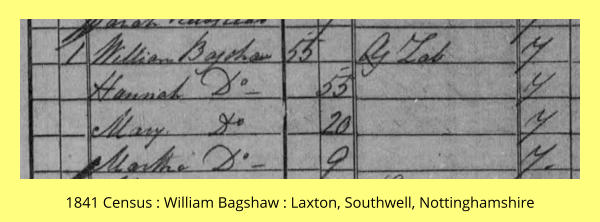 1 William Bagshaw 55 Ag Lab Y
Hannah Do 55 Y
Mary Do 20 Y
Martha Do 9 Y.
1841 Census : William Bagshaw : Laxton, Southwell, Nottinghamshire